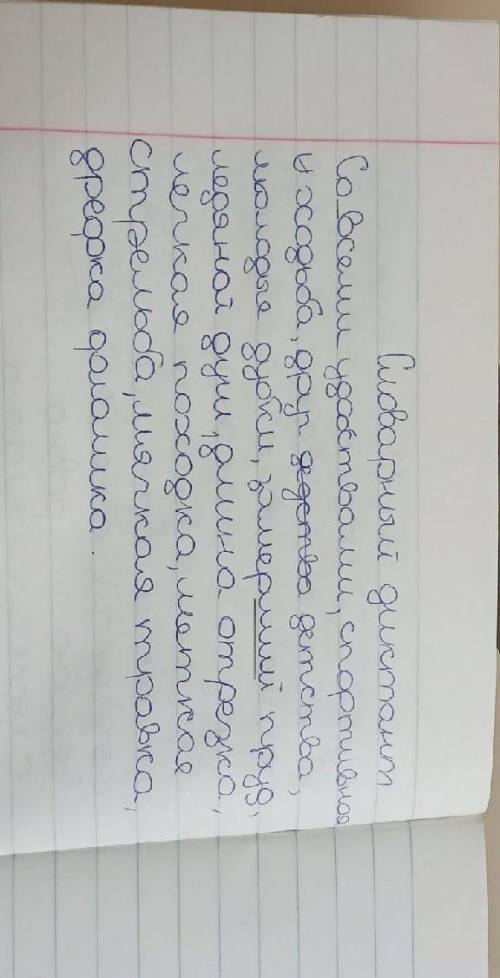 Словарный диктант
Со всеми удобствами, спортивная
и ходьба, друг дедства детства,
молодые дубки, замерзший пруд,
ледяной душ, длина отрезка,
легкая походка, меткая
стрельба, мягкая травка,
дрефка далашка.